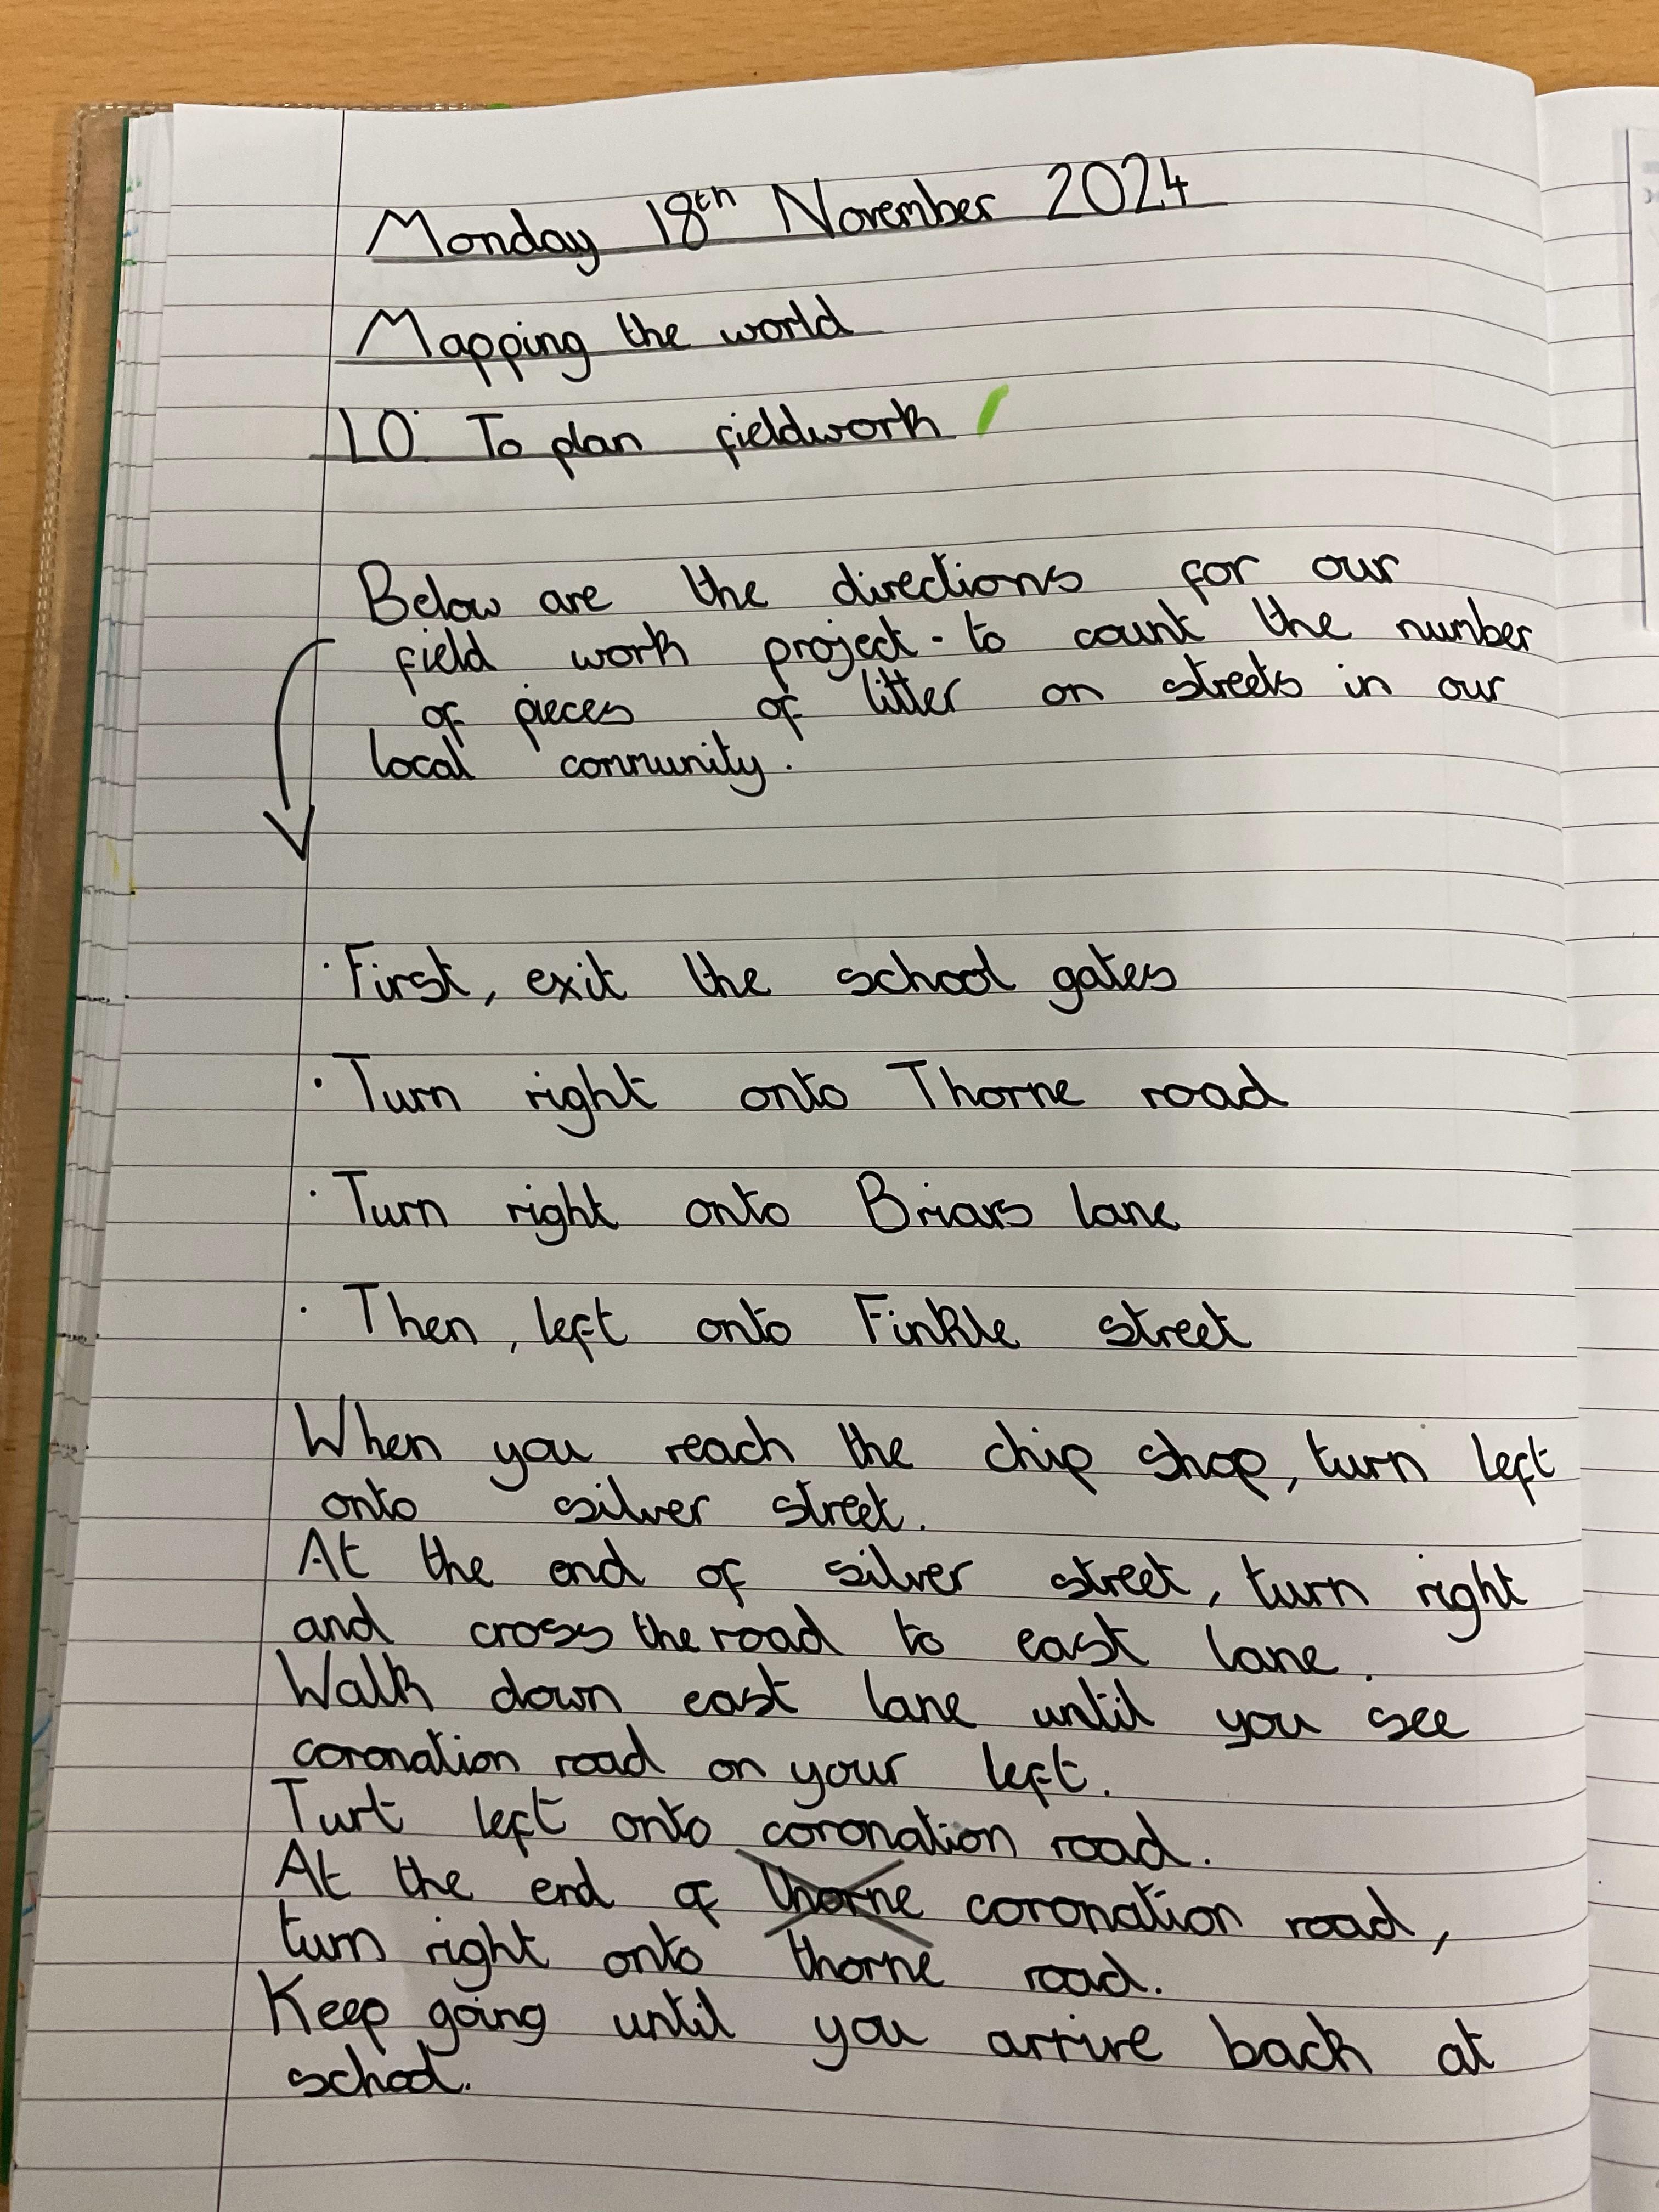 Monday 18th November 2024
Mapping the world
LO: To plan fieldwork
Below are the directions for our
field work project - to count the number
of pieces of litter on streets in our
local community.
· First, exit the school gates
· Turn right onto Thorne road
· Turn right onto Briars lane
· Then, left onto Finkle street
When you reach the chip shop, turn left
onto silver street.
At the end of silver street, turn right
and cross the road to east lane.
Walk down east lane until you see
coronation road on your left.
Turt left onto coronation road.
At the end of thorne coronation road,
turn right onto thorne road.
Keep going until you arrive back at
school.